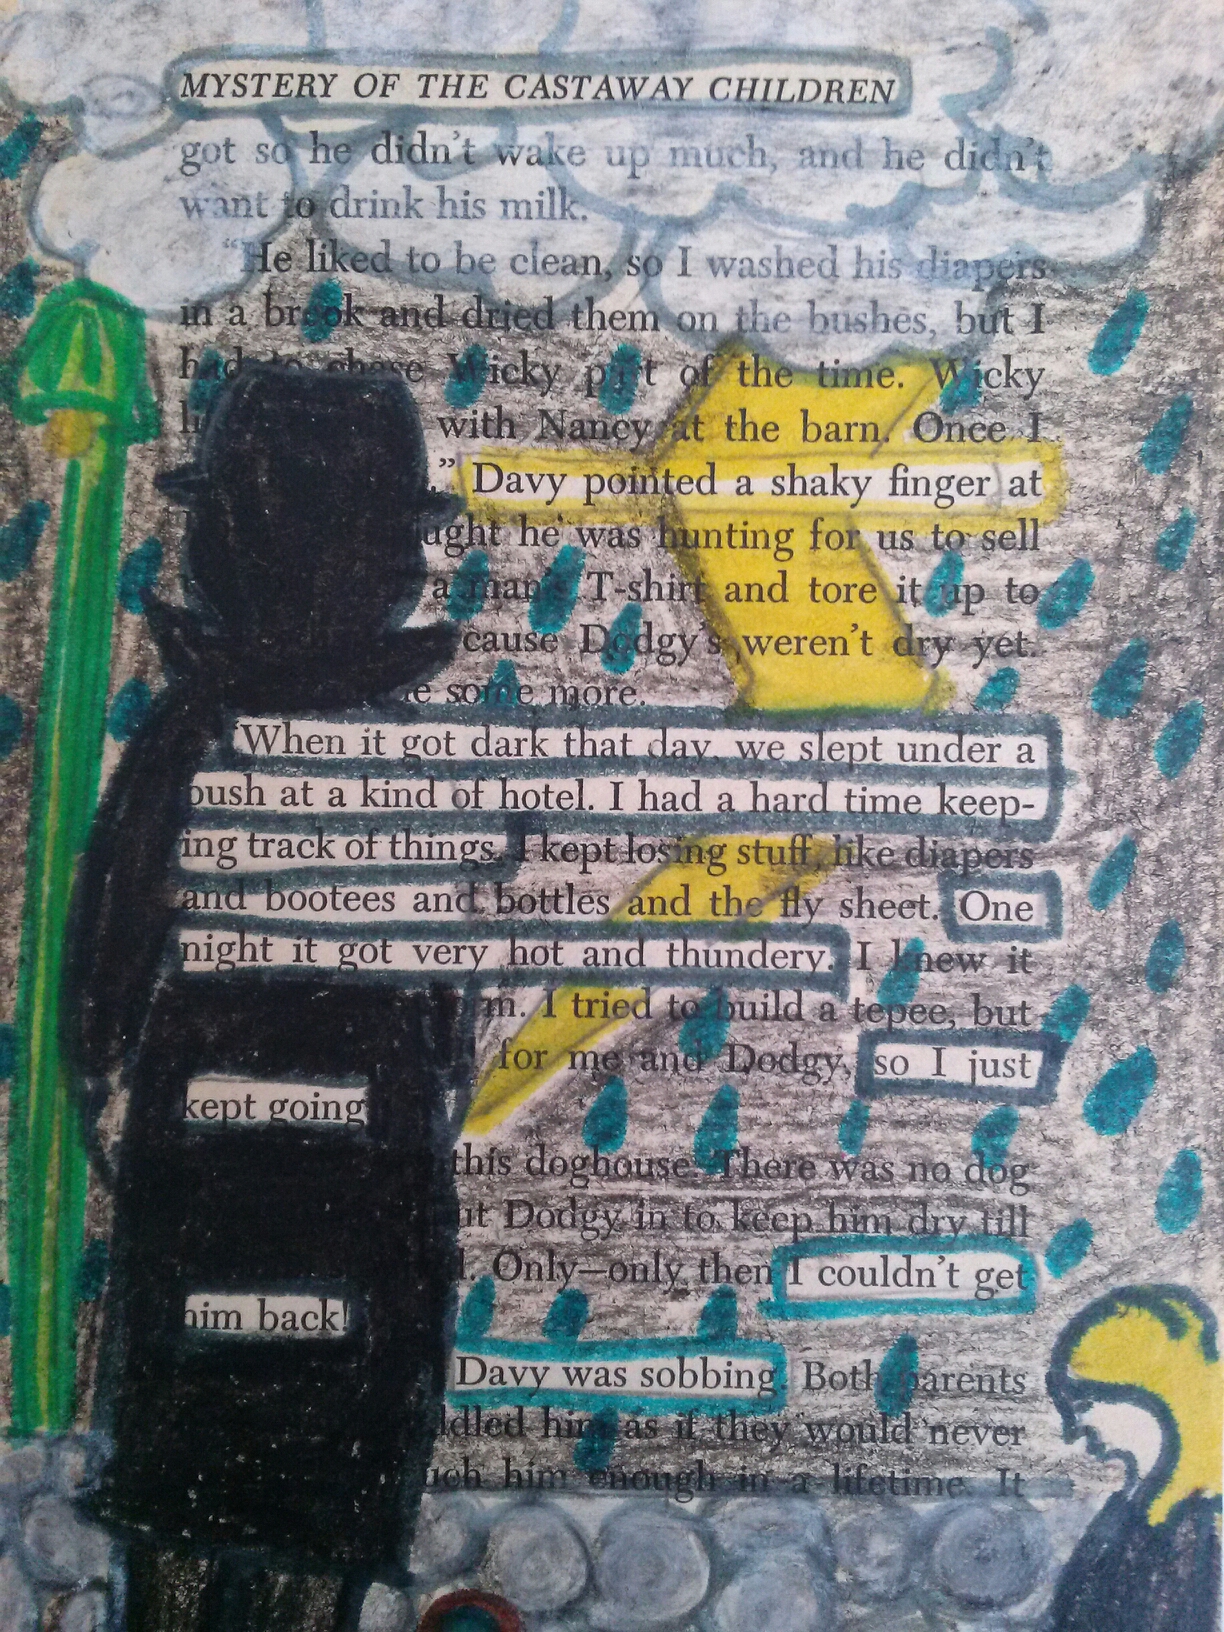 MYSTERY OF THE CASTAWAY CHILDREN
got so he didn't wake up much, and he didn't
want to drink his milk.
"He liked to be clean, so I washed his diapers
in a brook and dried them on the bushes, but I
had to chase Wicky part of the time. Wicky
with Nancy at the barn. Once I
." Davy pointed a shaky finger at
he was hunting for us to sell
a man's T-shirt and tore it up to
cause Dodgy's weren't dry yet.
some more.
"When it got dark that day, we slept under a
bush at a kind of hotel. I had a hard time keep-
ing track of things. I kept losing stuff, like diapers
and bootees and bottles and the fly sheet. One
night it got very hot and thundery. I knew it
I tried to build a tepee, but
for me and Dodgy, so I just
kept going
this doghouse. There was no dog
Dodgy in to keep him dry till
Only—only then I couldn't get
him back!
Davy was sobbing. Both parents
him as if they would never
him enough in a lifetime. It